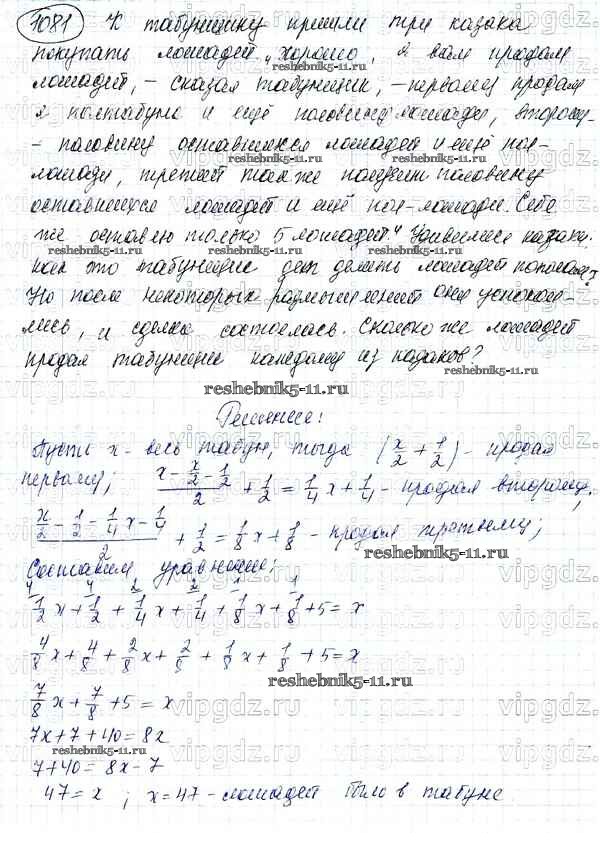 1081 К табунщику пришли три казака
покупать лошадей. „Хорошо, я вам продам
лошадей, – сказал табунщик, – первому продам
я полтабуна и ещё половину лошади, второму –
– половину оставшихся лошадей и ещё пол-
лошади, третий также получит половину
оставшихся лошадей и ещё пол-лошади. Себе
же оставлю только 5 лошадей". Удивились казаки,
как это табунщик будет делить лошадей пополам?
Но после некоторых размышлений они успокои-
лись, и сделка состоялась. Сколько же лошадей
продал табунщик каждому из казаков?
reshebnik5-11.ru
Решение:
Пусть x - весь табун, тогда (x/2 + 1/2) - продал
первому; (x - x/2 - 1/2)/2 + 1/2 = 1/4 x + 1/4 - продал второму;
(x/2 - 1/2 - 1/4 x - 1/4)/2 + 1/2 = 1/8 x + 1/8 - продал третьему;
reshebnik5-11.ru
Составим уравнение:
1/2 x + 1/2 + 1/4 x + 1/4 + 1/8 x + 1/8 + 5 = x
4/8 x + 4/8 + 2/8 x + 2/8 + 1/8 x + 1/8 + 5 = x
reshebnik5-11.ru
7/8 x + 7/8 + 5 = x
7x + 7 + 40 = 8x
reshebnik5-11.ru
7 + 40 = 8x - 7
47 = x ; x = 47 - лошадей было в табуне
reshebnik5-11.ru